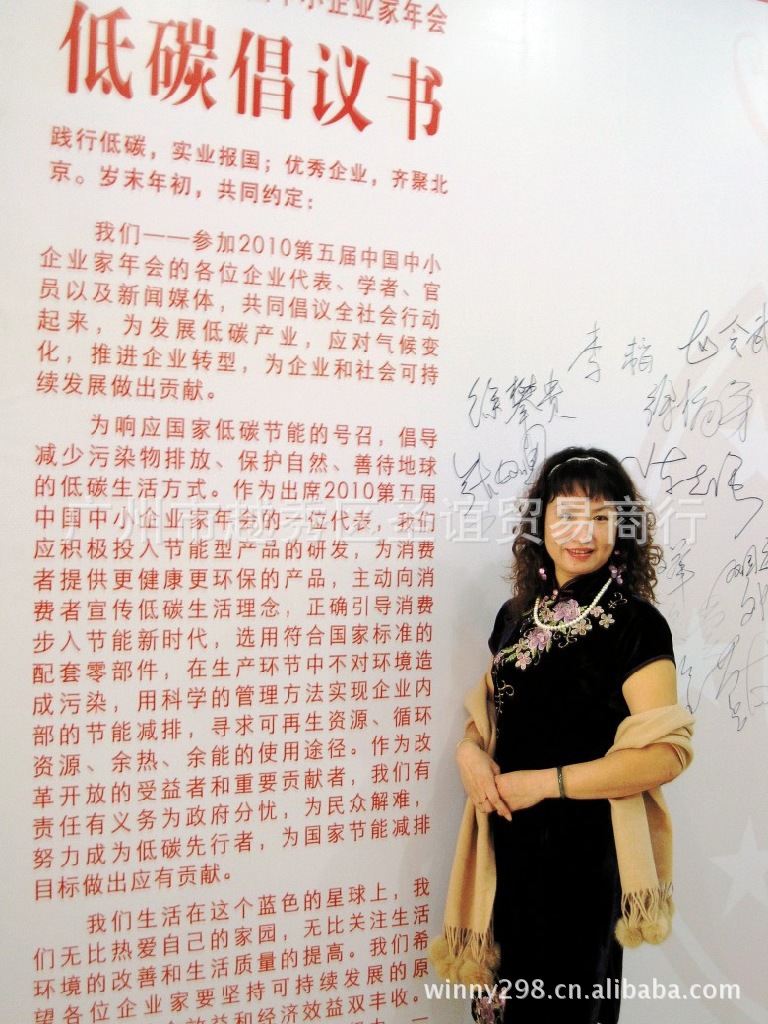 中小企业家年会
低碳倡议书
践行低碳，实业报国；优秀企业，齐聚北
京。岁末年初，共同约定：
我们——参加2010第五届中国中小
企业家年会的各位企业代表、学者、官
员以及新闻媒体，共同倡议全社会行动
起来，为发展低碳产业，应对气候变
化，推进企业转型，为企业和社会可持
续发展做出贡献。
为响应国家低碳节能的号召，倡导
减少污染物排放、保护自然、善待地球
的低碳生活方式。作为出席2010第五届
中国中小企业家年会的一位代表，我们
应积极投入节能型产品的研发，为消费
者提供更健康更环保的产品，主动向消
费者宣传低碳生活理念，正确引导消费
步入节能新时代，选用符合国家标准的
配套零部件，在生产环节中不对环境造
成污染，用科学的管理方法实现企业内
部的节能减排，寻求可再生资源、循环
资源、余热、余能的使用途径。作为改
革开放的受益者和重要贡献者，我们有
责任有义务为政府分忧，为民众解难，
努力成为低碳先行者，为国家节能减排
目标做出应有贡献。
我们生活在这个蓝色的星球上，我
们无比热爱自己的家园，无比关注生活
环境的改善和生活质量的提高。我们希
望各位企业家要坚持可持续发展的原
效益和经济效益双丰收。
李韬
徐攀贵
广州市越秀区圣谊贸易商行
winny298.cn.alibaba.com